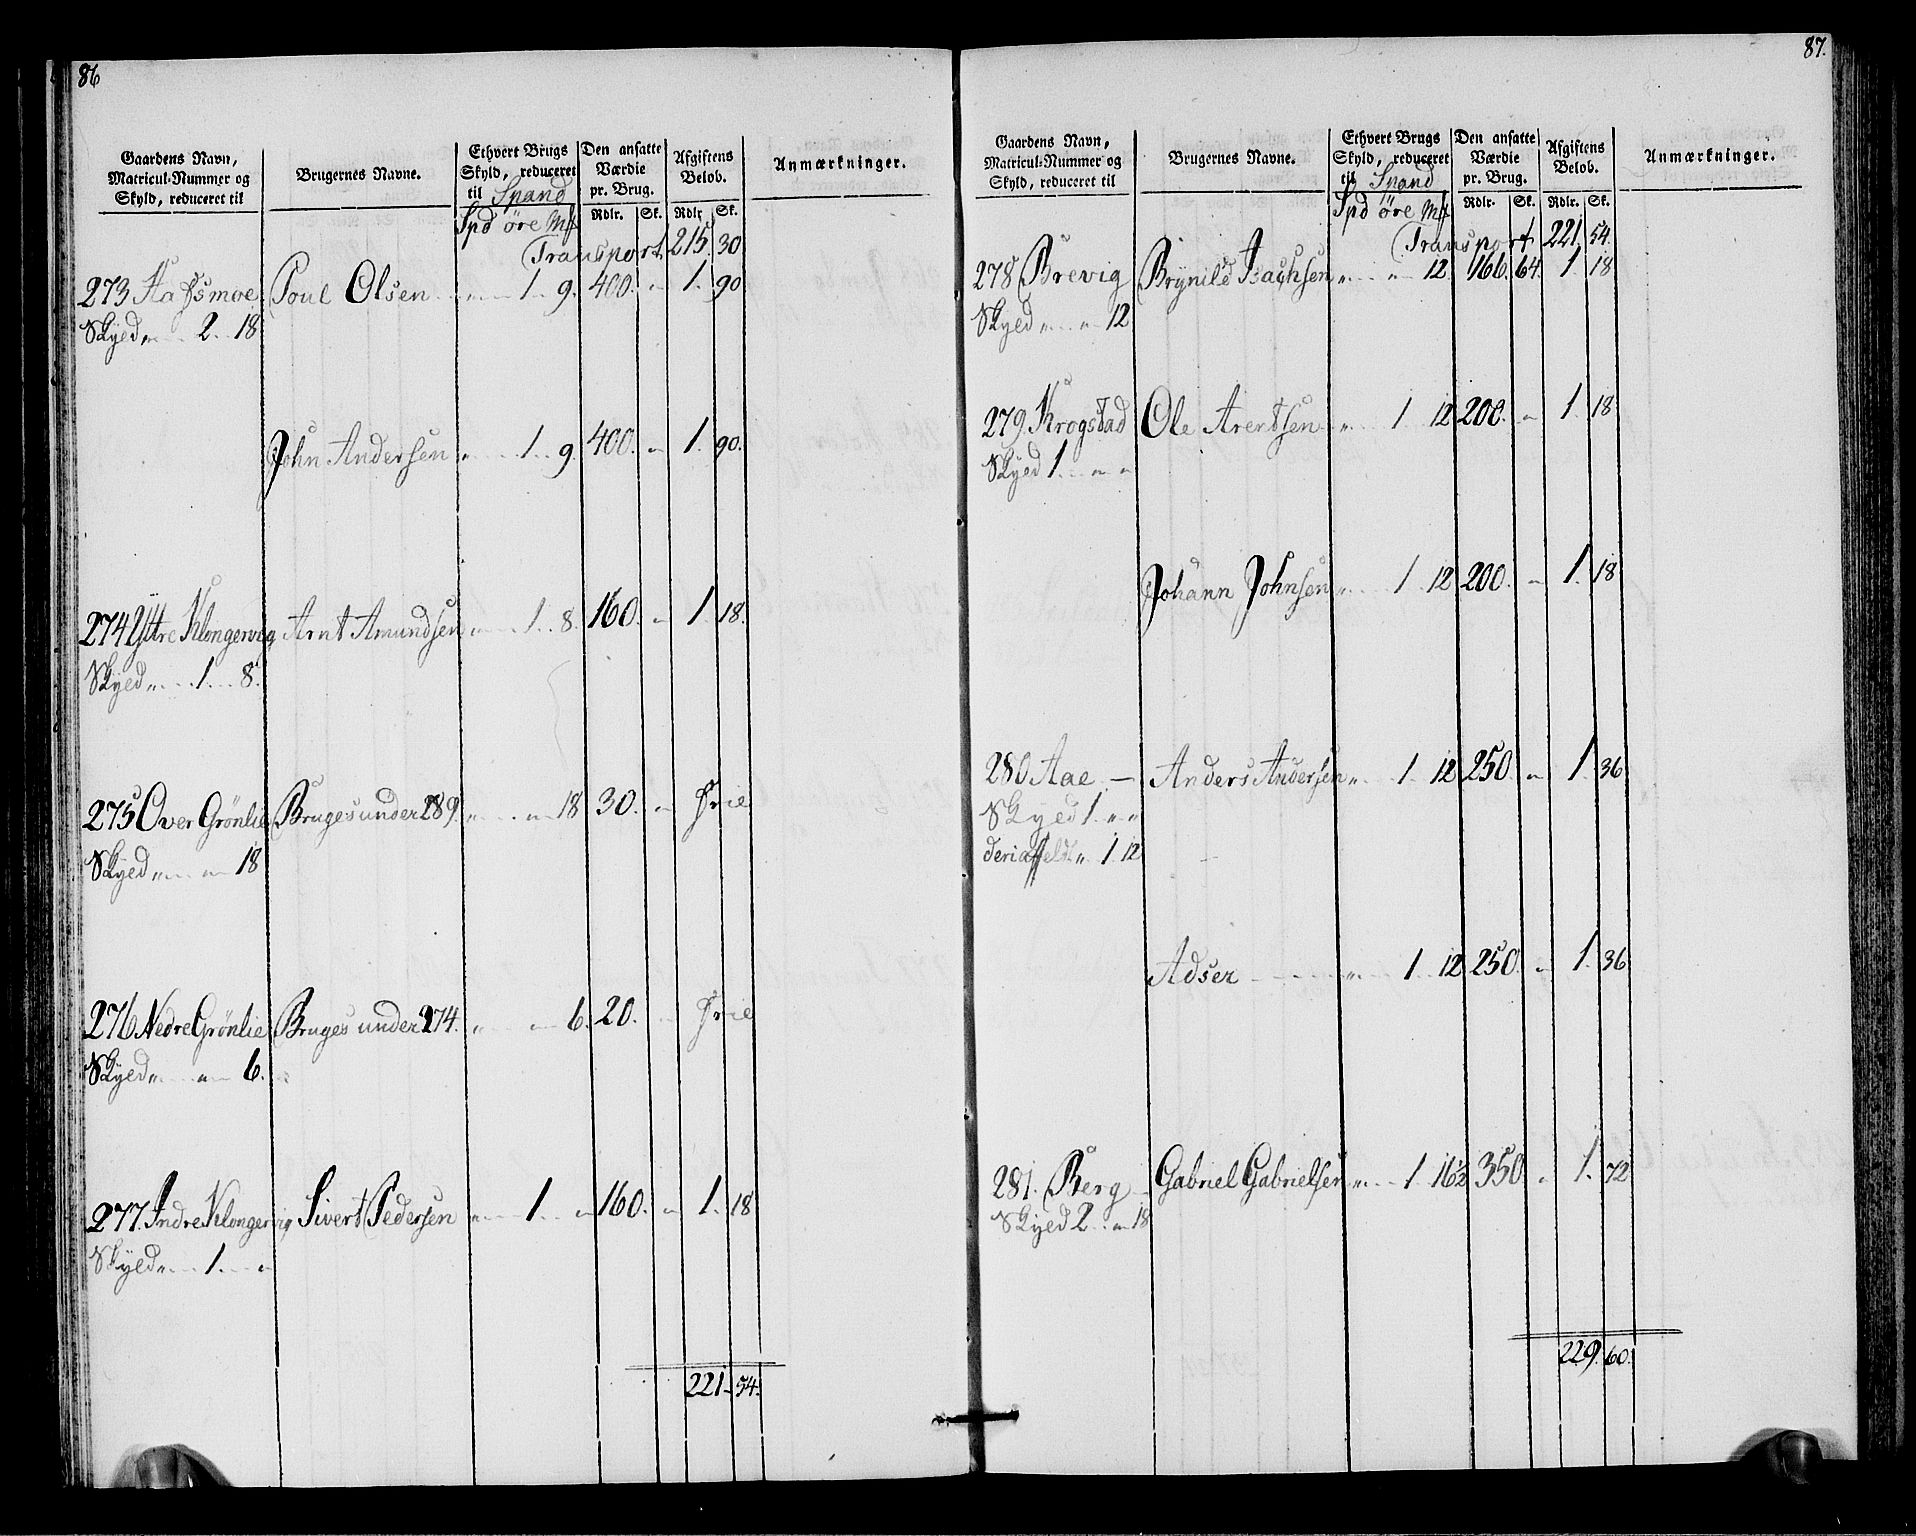 86
Gaardens Navn, Matricul-Nummer og Skyld, reduceret til
Brugernes Navne.
Ethvert Brugs Skyld, reduceret til Spand
Den ansatte Værdie pr. Brug.
Afgiftens Belob.
Anmærkninger.
Spd öre Mk
Rdlr. Sk. Rdlr Sk.
Transport 215. 30
273 Poul Olsen 1 9. 400. " 1. 90
Skyld " 2 18
John Andersen " 1 9. 400. " 1. 90.
274 Yttre Klongervig Arnt Amundsen " 1 8. 160. " 1. 18.
Skyld " 1 8.
275 Over Grönlie Bruges under 289. " " 18 30. " frie
Skyld " " 18
276 Nedre Grönlie Bruges under 274. " " 6. 20. " frie
Skyld " " 6.
277. Indre Klongervig Sivert Pedersen " 1 " 160. " 1. 18
Skyld " 1 "
221. 54.
87.
Gaardens Navn, Matricul-Nummer og Skyld, reduceret til
Brugernes Navne.
Ethvert Brugs Skyld, reduceret til Spand
Den ansatte Værdie pr. Brug.
Afgiftens Belob.
Anmærkninger.
Spd öre Mk
Rdlr. Sk. Rdlr. Sk.
Transport 221. 54.
278 Brevig Brynild Isachsen " " 12 166. 64. 1. 18
Skyld " " 12
279. Krogstad Ole Arentsen " 1 12 200. " 1. 18
Skyld 1 " "
Johann Johnsen " 1 12 200. " 1. 18
280 Aae — Anders Andersen " 1 12 250. " 1. 36
Skyld 1 " "
" 1 12
Adser " 1 12 250. " 1. 36
281. Berg Gabriel Gabrielsen " 1 16½ 350 " 1. 72
Skyld 2 " 18
229. 60.